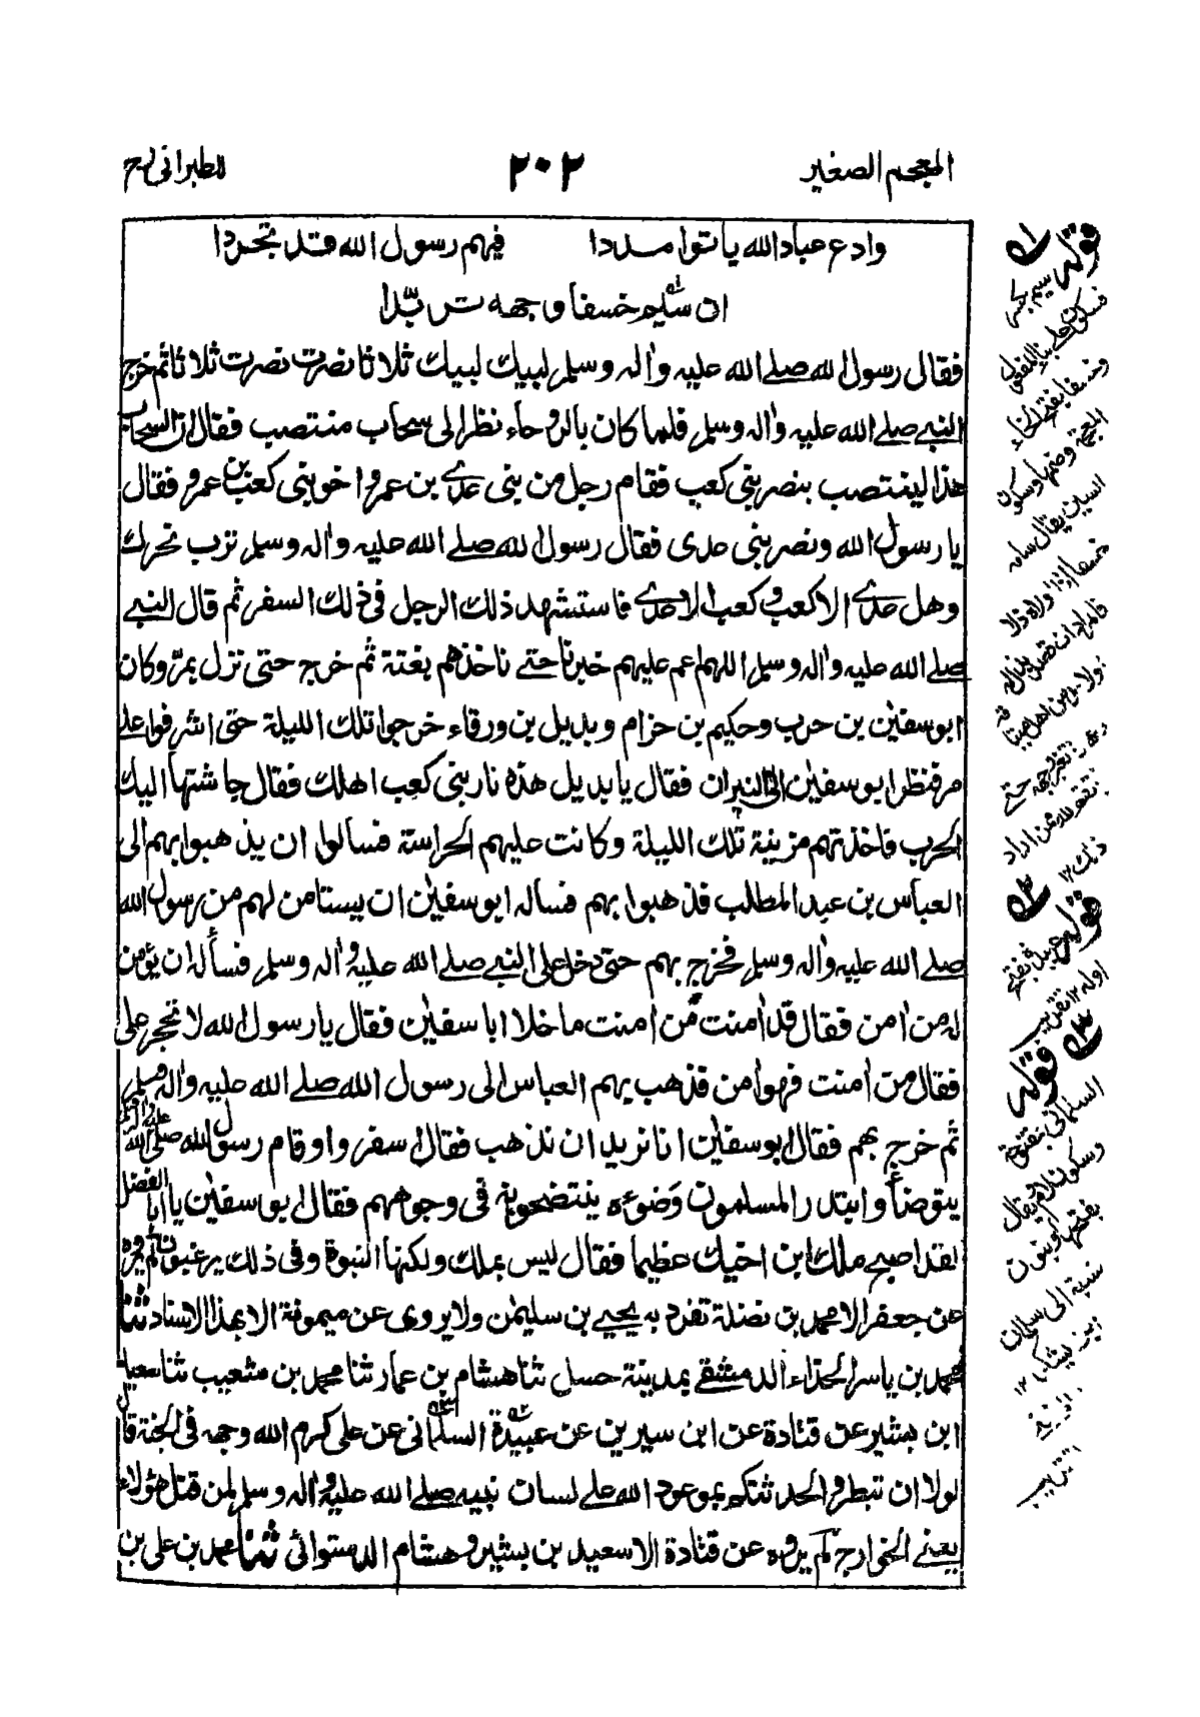 المعجم الصغير
٢٠٢
للطبرانى رح
وادع عباد الله ياتوا مددا فيهم رسول الله قد تجردا
ان سيم خسفا وجهه تربدا
فقال رسول الله صلے الله عليه واٰله وسلم لبيك لبيك لبيك ثلاثا نصرت نصرت ثلاثا ثم خرج
النبے صلے الله عليه واٰله وسلم فلما كان بالروحاء نظر الى سحاب منتصب فقال ان السحاب
هذا لينتصب بنصر بنى كعب فقام رجل من بنى عدے بن عمرو اخو بنى كعب بن عمرو فقال
يا رسول الله ونصر بنى عدى فقال رسول الله صلے الله عليه واٰله وسلم ترب نحرك
وهل عدے الا كعب وكعب الا عدے فاستشهد ذلك الرجل فى ذلك السفر ثم قال النبے
صلے الله عليه واٰله وسلم اللهم اعم عليهم خبرنا حتے ناخذهم بغتة ثم خرج حتى نزل بمرّ وكان
ابو سفيٰن بن حرب وحكيم بن حزام وبديل بن ورقاء خرجوا تلك الليلة حتى اشرفوا علے
مر فنظر ابو سفيٰن الى النيران فقال يا بديل هذه نار بنى كعب اهلك فقال جاشتها اليك
الحرب فاخذتهم مزينة تلك الليلة وكانت عليهم الحراسة فسألوا ان يذهبوا بهم الى
العباس بن عبد المطلب فذهبوا بهم فسأله ابو سفيٰن ان يستامن لهم من رسول الله
صلے الله عليه واٰله وسلم فخرج بهم حتى دخل على النبے صلے الله عليه واٰله وسلم فسأله ان يؤمن
له من اٰمن فقال قد اٰمنت من اٰمنت ما خلا ابا سفيٰن فقال يا رسول الله لا تحجر على
فقال من امنت فهو اٰمن فذهب بهم العباس الى رسول الله صلے الله عليه واٰله وسلم
ثم خرج بهم فقال ابو سفيٰن انا نريد ان نذهب فقال اسفروا وقام رسول الله صلى الله عليه واٰله وسلم
يتوضأ وابتدر المسلمون وَضوءه ينتضحونه فى وجوههم فقال ابو سفيٰن يا ابا الفضل
لقد اصبح ملك ابن اخيك عظيما فقال ليس بملك ولكنها النبوة وفى ذلك يرغبون لم يروه
عن جعفر الا محمد بن نضلة تفرد به يحيے بن سليمٰن ولا يروى عن ميمونة الا بهذا الاسناد ثنا
محمد بن ياسر الحذاء الدمشقے بمدينة جبيل ثنا هشام بن عمار ثنا محمد بن شعيب ثنا سعيد
ابن بشير عن قتادة عن ابن سيرين عن عبيدة السلمانى عن على كرم الله وجهه فى الجنة قال
لولا ان تبطروا لحدثتكم بموعود الله علے لسان نبيه صلے الله عليه واٰله وسلم لمن قتل هؤلاء
يعنے الخوارج لم يروه عن قتادة الا سعيد بن بشير وهشام الدستوائى ثنا محمد بن على بن
قوله
سيم بكسر
فسكون
وخسفا بفتح الخاء
المعجمة وضمها وسكون
السين يقال سامه
خسفا اذا اولاه ذلا
قوله عبيدة بفتح
اوله ١٢ تقريب
قوله
السلمانى بفتح
وسكون لام ويقال
بفتحها
نسبة الى سلمان